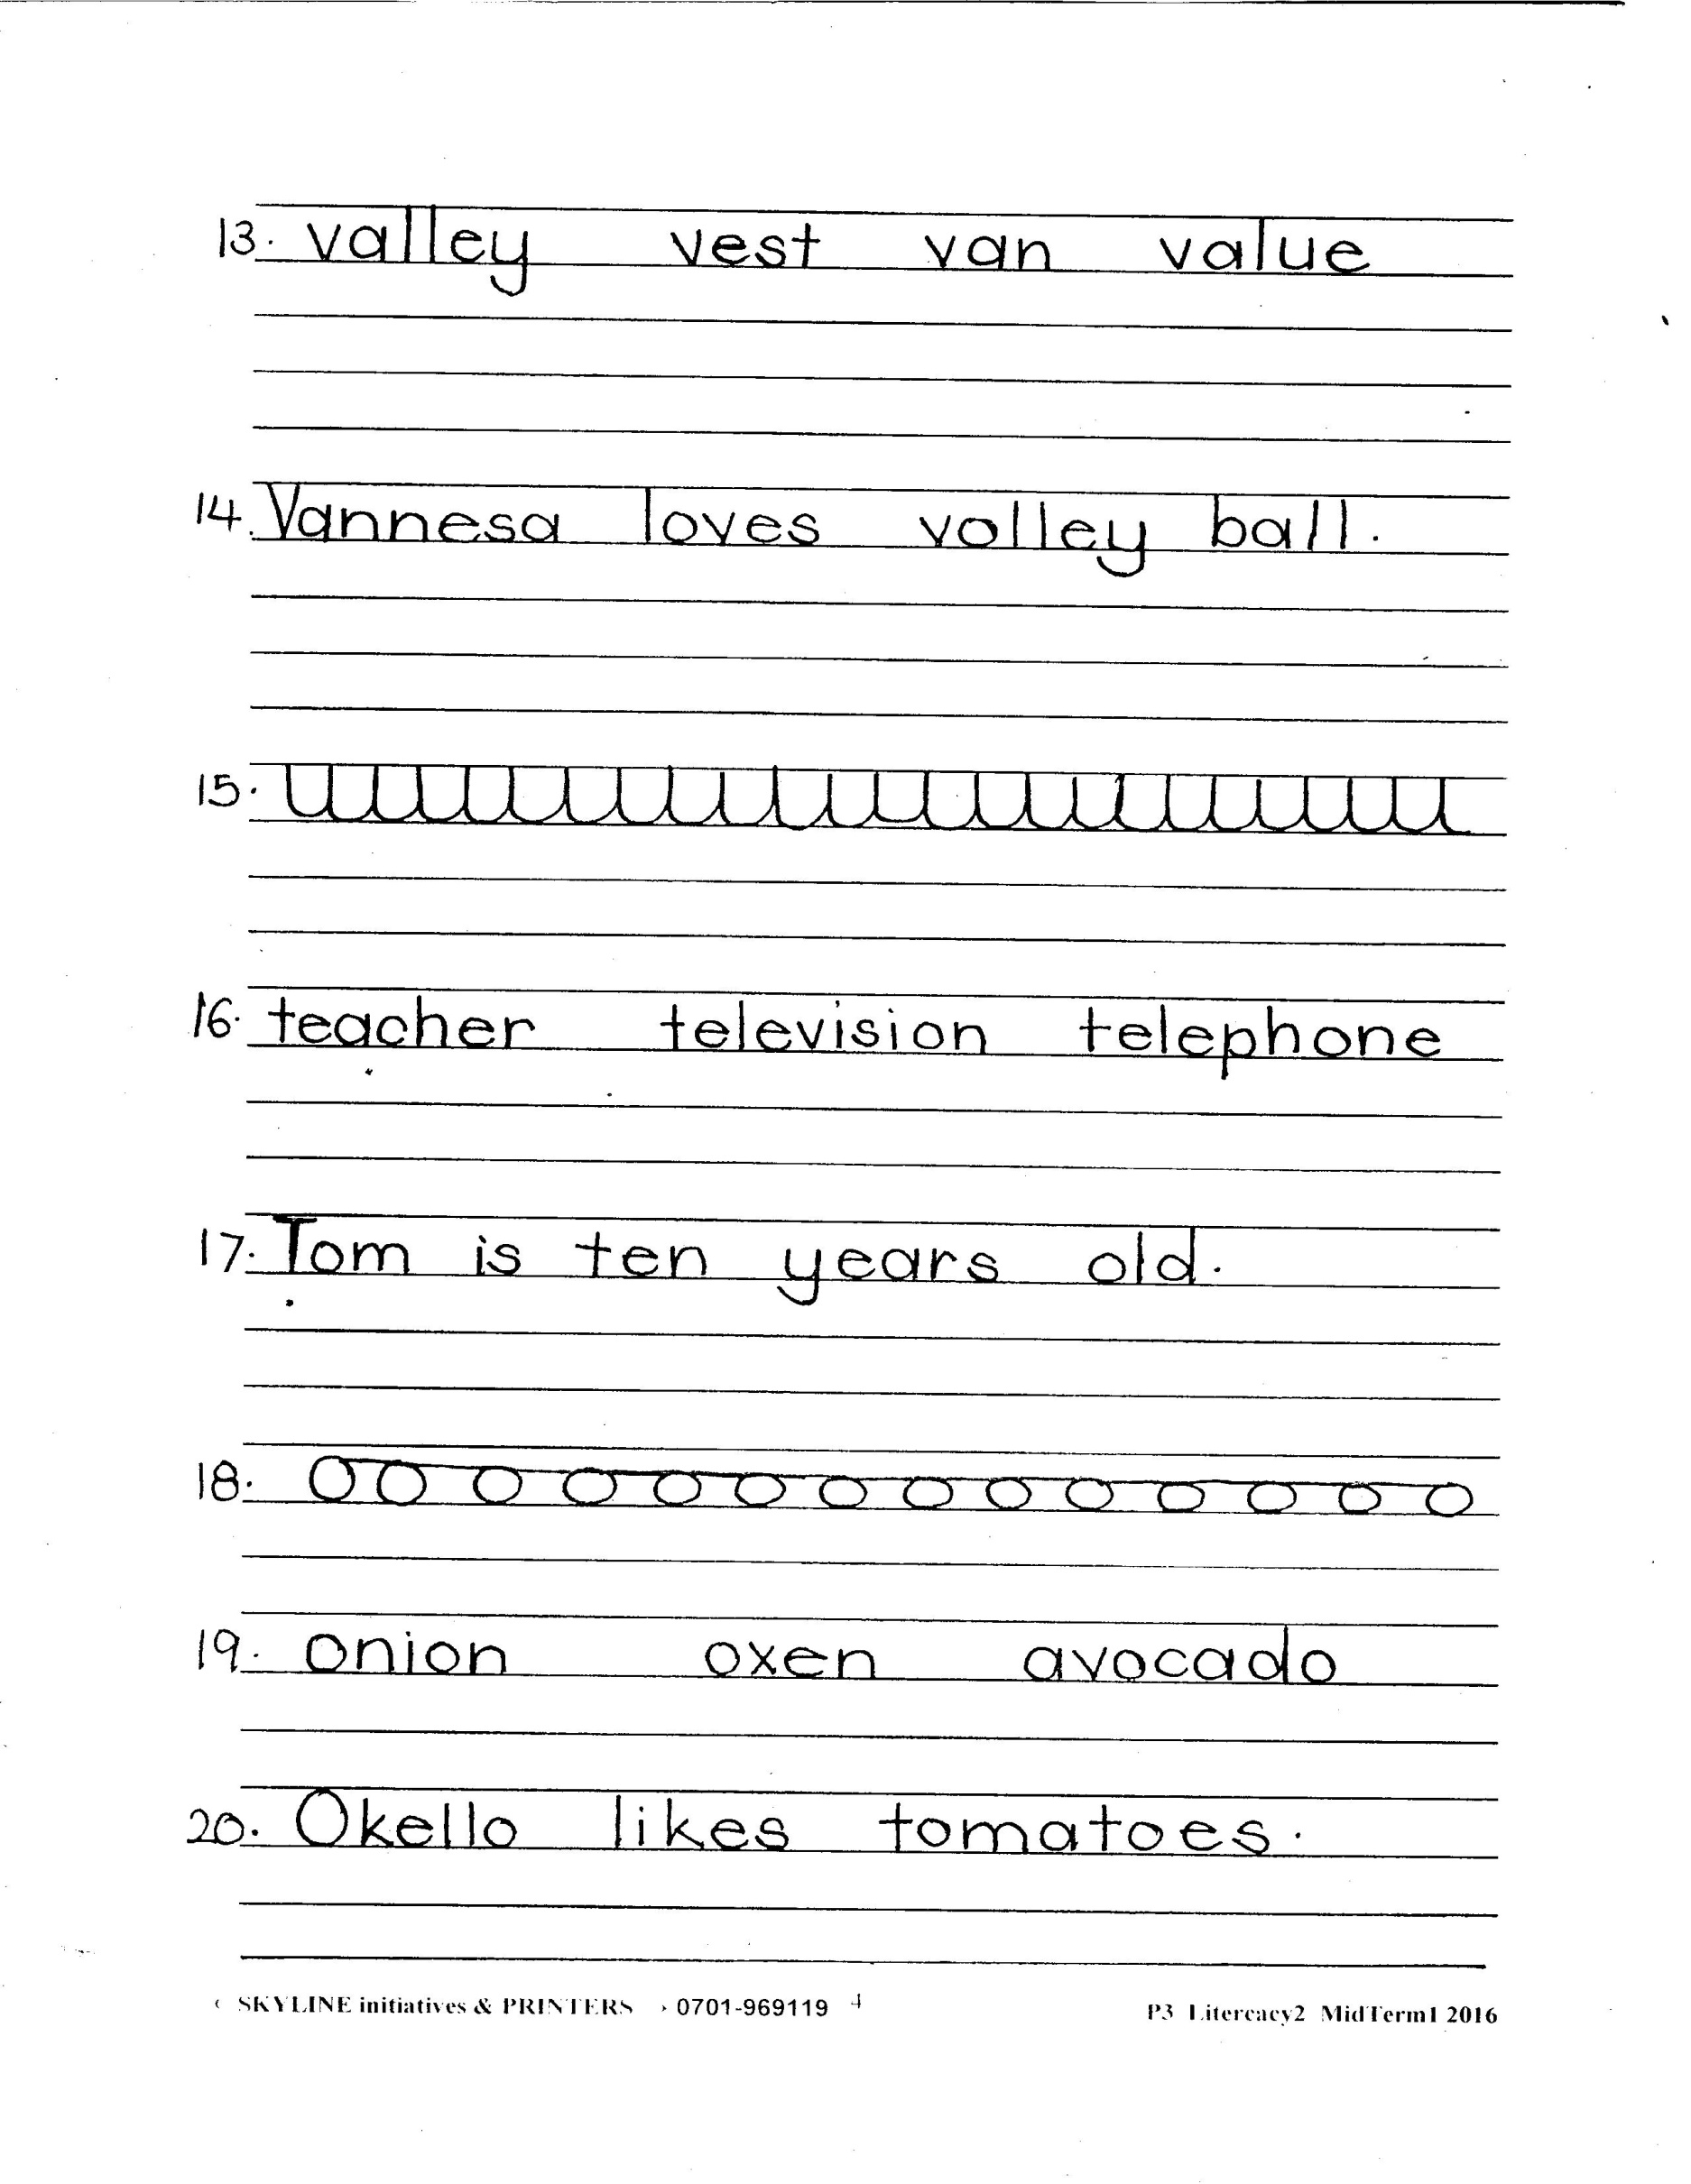 13. valley vest van value
14. Vannesa loves volley ball.
15.
16. teacher television telephone
17. Tom is ten years old.
18.
19. onion oxen avocado
20. Okello likes tomatoes.
SKYLINE initiatives & PRINTERS 0701-969119 4 P3 Litercacy2 MidTerm1 2016